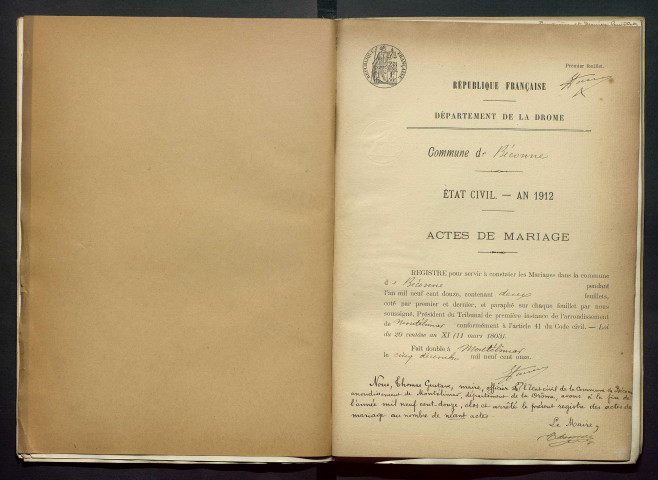 Premier feuillet.
RÉPUBLIQUE FRANÇAISE
RÉPUBLIQUE FRANÇAISE
DÉPARTEMENT DE LA DROME
Commune de Béconne
ÉTAT CIVIL. — AN 1912
ACTES DE MARIAGE
REGISTRE pour servir à constater les Mariages dans la commune
d e Béconne pendant
l'an mil neuf cent douze, contenant deux feuillets,
coté par premier et dernier, et paraphé sur chaque feuillet par nous
soussigné, Président du Tribunal de première instance de l'arrondissement
de Montélimar conformément à l'article 41 du Code civil. — Loi
du 20 ventôse an XI (11 mars 1803).
Fait double à Montélimar
le cinq décembre mil neuf cent onze.
Nous, Thomas Gustave, maire, officier de l'état civil de la Commune de Béconne
arrondissement de Montélimar, département de la Drôme, avons à la fin de
l'année mil neuf cent douze, clos et arrêté le présent registre des actes de
mariage au nombre de néant actes.
Le Maire,